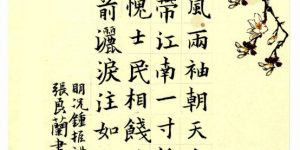 風兩袖朝天
帶江南一寸
愧士民相餞
前灑淚注如
明况鍾
張良蘭書